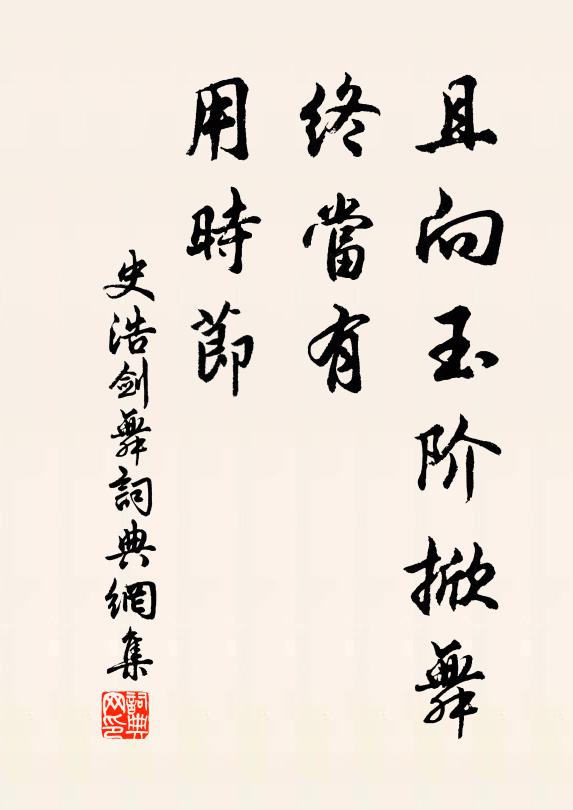 且向玉阶掀舞
終當有
用時節
史浩剑舞詞典網集
詞典网印